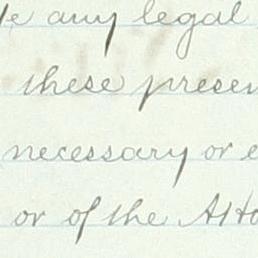 any legal
these presen
necessary or e
or of the Atto